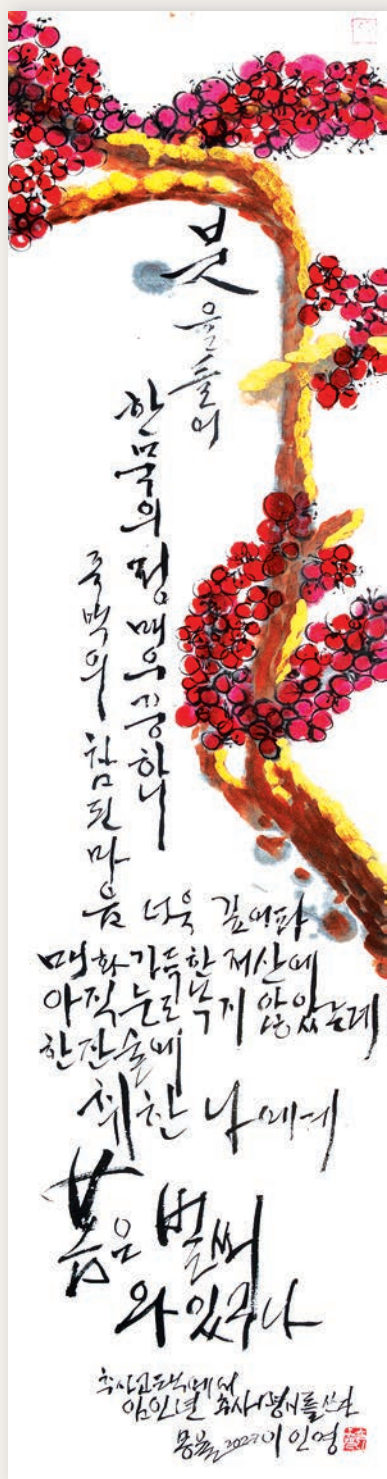 붓
을 들어
한묵의 정 매우 중하니
죽백의 참된 마음
더욱 깊어라
매화 가득한 저 산에
아직 눈도 녹지 않았는데
한잔 술에
취한 나에게
봄은 벌써
와 있구나
추사고택에서
임인년 추사 시를 쓰다
2022 이인영